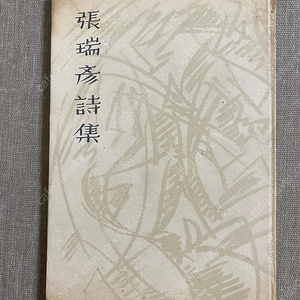 張瑞彦詩集